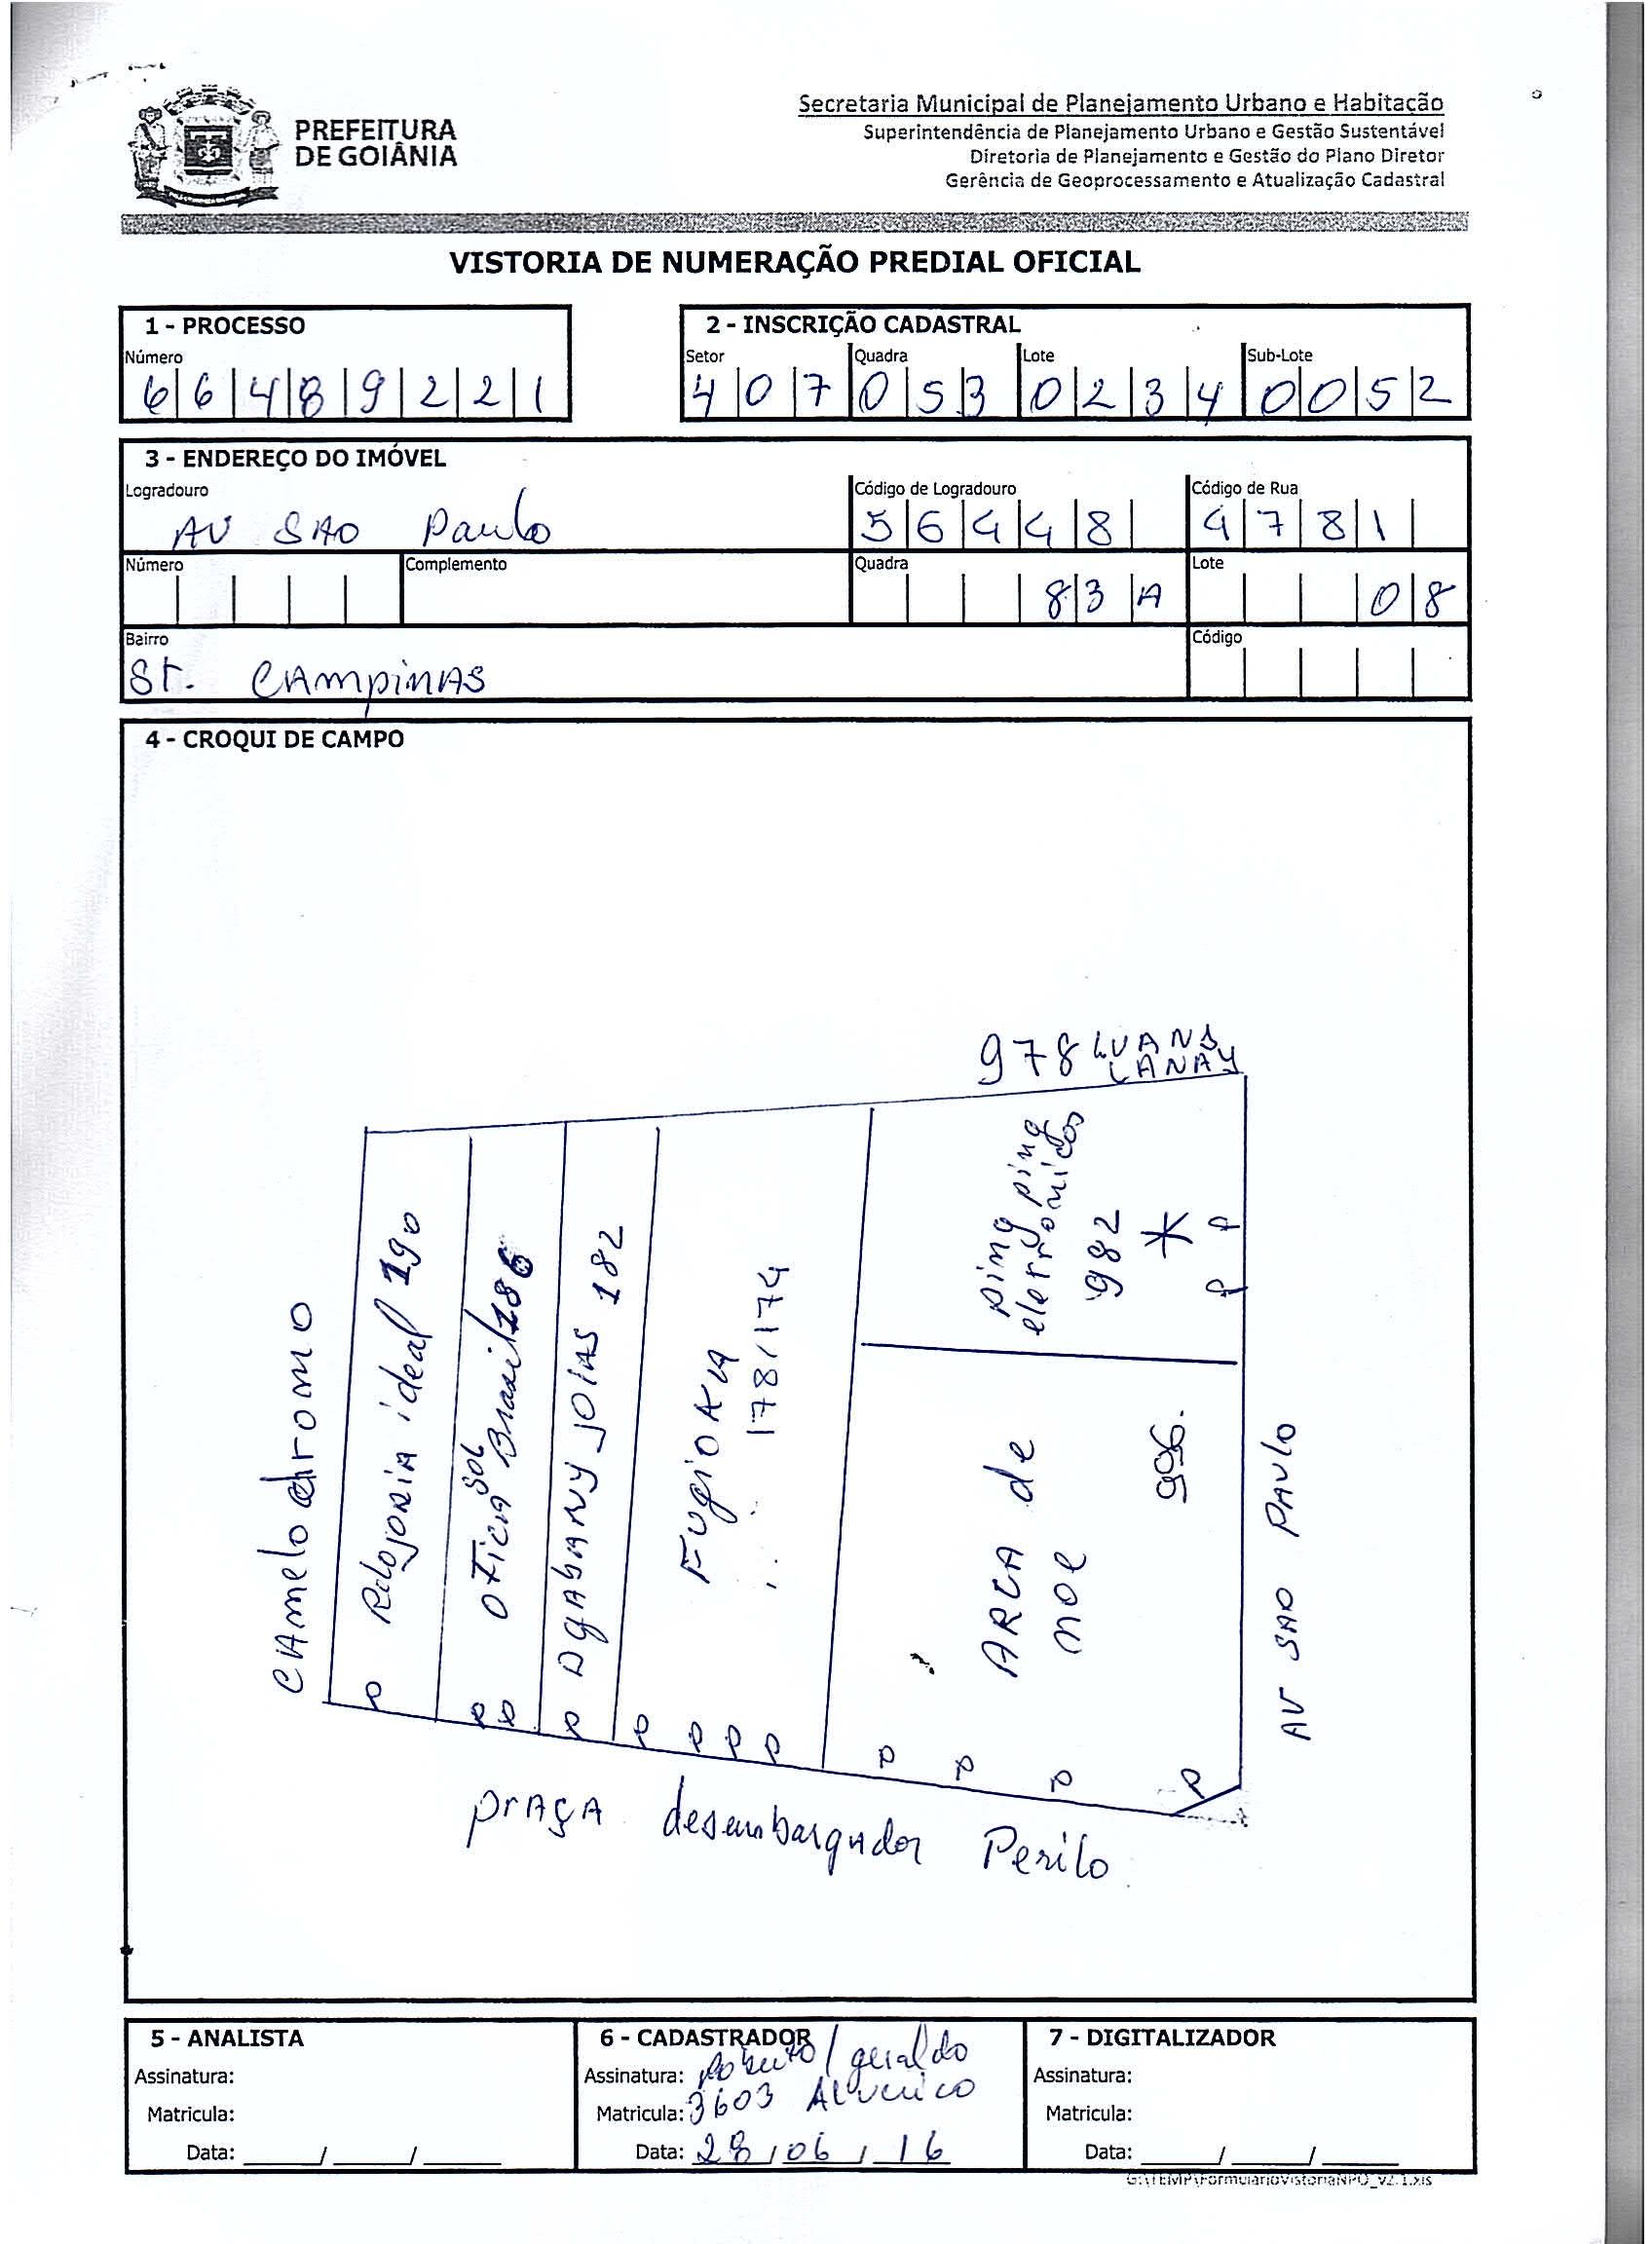 PREFEITURA
DE GOIÂNIA
Secretaria Municipal de Planejamento Urbano e Habitação
Superintendência de Planejamento Urbano e Gestão Sustentável
Diretoria de Planejamento e Gestão do Plano Diretor
Gerência de Geoprocessamento e Atualização Cadastral
VISTORIA DE NUMERAÇÃO PREDIAL OFICIAL
1 - PROCESSO
Número
66489221
2 - INSCRIÇÃO CADASTRAL
Setor Quadra Lote Sub-Lote
407 053 0234 0052
3 - ENDEREÇO DO IMÓVEL
Logradouro Código de Logradouro Código de Rua
AV SAO Paulo 56448 4781
Número Complemento Quadra Lote
83A 08
Bairro Código
St. CAmpinAS
4 - CROQUI DE CAMPO
978 LUANS
LANAY
ping ping
eletronicos
982
*
P P
CAmelodromo
Relojoria ideal 190
P
oticA SOL
Brasil 186
P P
DgAbANY JOIAS 182
P
FugioKA
178/174
P P P P
ARCA de
noe
996.
P P P P
AV SAO PAulo
prAçA desembargador Perilo
5 - ANALISTA
Assinatura:
Matricula:
Data: ____/____/____
6 - CADASTRADOR
Assinatura: Roberto / geraldo
Matricula: 3603
Data: 28/06/16
7 - DIGITALIZADOR
Assinatura:
Matricula:
Data: ____/____/____
G:\TEMP\FormularioVistoriaNPO_v2.1.xls